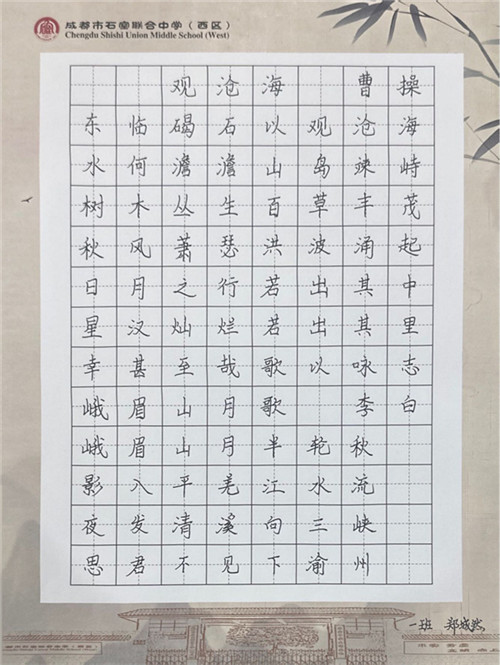 成都市石室联合中学（西区）
Chengdu Shishi Union Middle School (West)
观沧海 曹操
东临碣石以观沧海
水何澹澹山岛竦峙
树木丛生百草丰茂
秋风萧瑟洪波涌起
日月之行若出其中
星汉灿烂若出其里
幸甚至哉歌以咏志
峨眉山月歌 李白
峨眉山月半轮秋
影入平羌江水流
夜发清溪向三峡
思君不见下渝州
一班